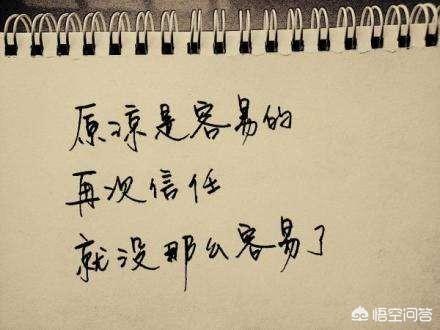 原凉是容易的
再次信任
就没那么容易了
悟空问答